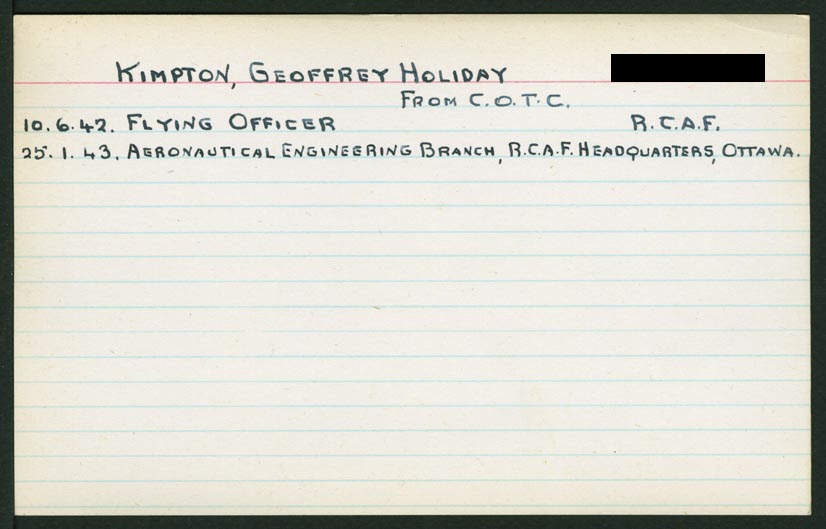 KIMPTON, GEOFFREY HOLIDAY
FROM C.O.T.C.
10.6.42. FLYING OFFICER R.C.A.F.
25.1.43. AERONAUTICAL ENGINEERING BRANCH, R.C.A.F. HEADQUARTERS, OTTAWA.